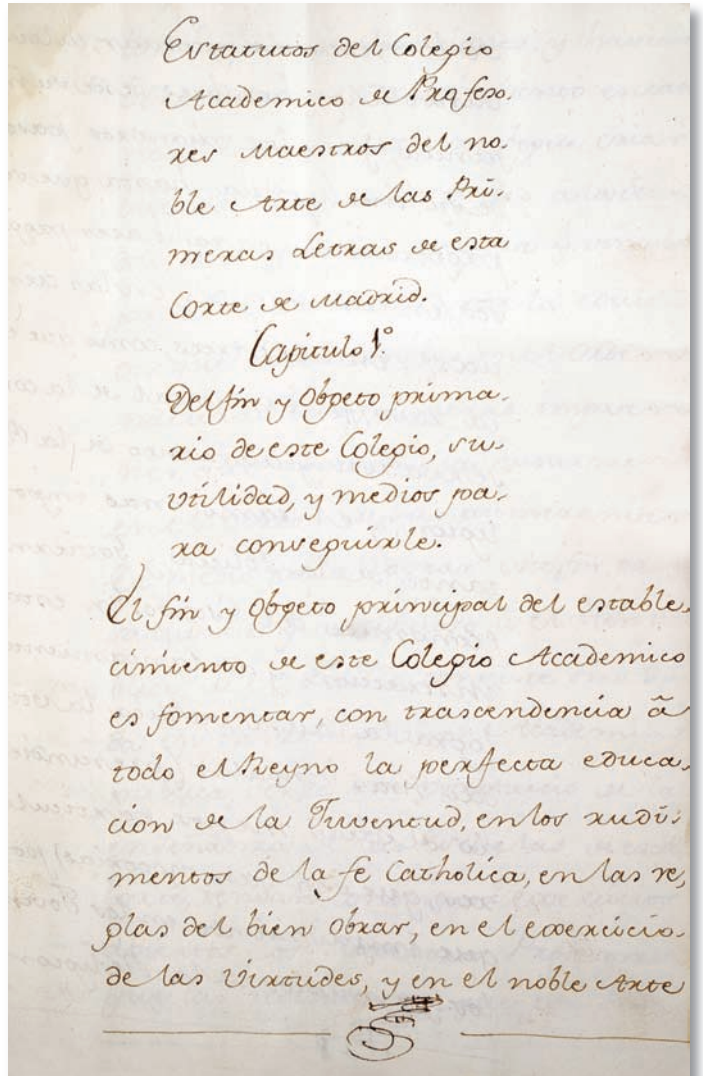 Estatutos del Colegio
Academico de Profeso-
res Maestros del no-
ble Arte de las Pri-
meras Letras de esta
Corte de Madrid.
Capitulo 1º
Del fin y Obgeto prima-
rio de este Colegio, su
utilidad, y medios pa-
ra conseguirle.
El fin y Obgeto principal del estable-
cimiento de este Colegio Academico
es fomentar, con trascendencia â
todo el Reyno la perfecta educa-
cion de la Juventud, en los rudi-
mentos de la fe Catholica, en las re-
glas del bien obrar, en el exercicio
de las Virtudes, y en el noble Arte